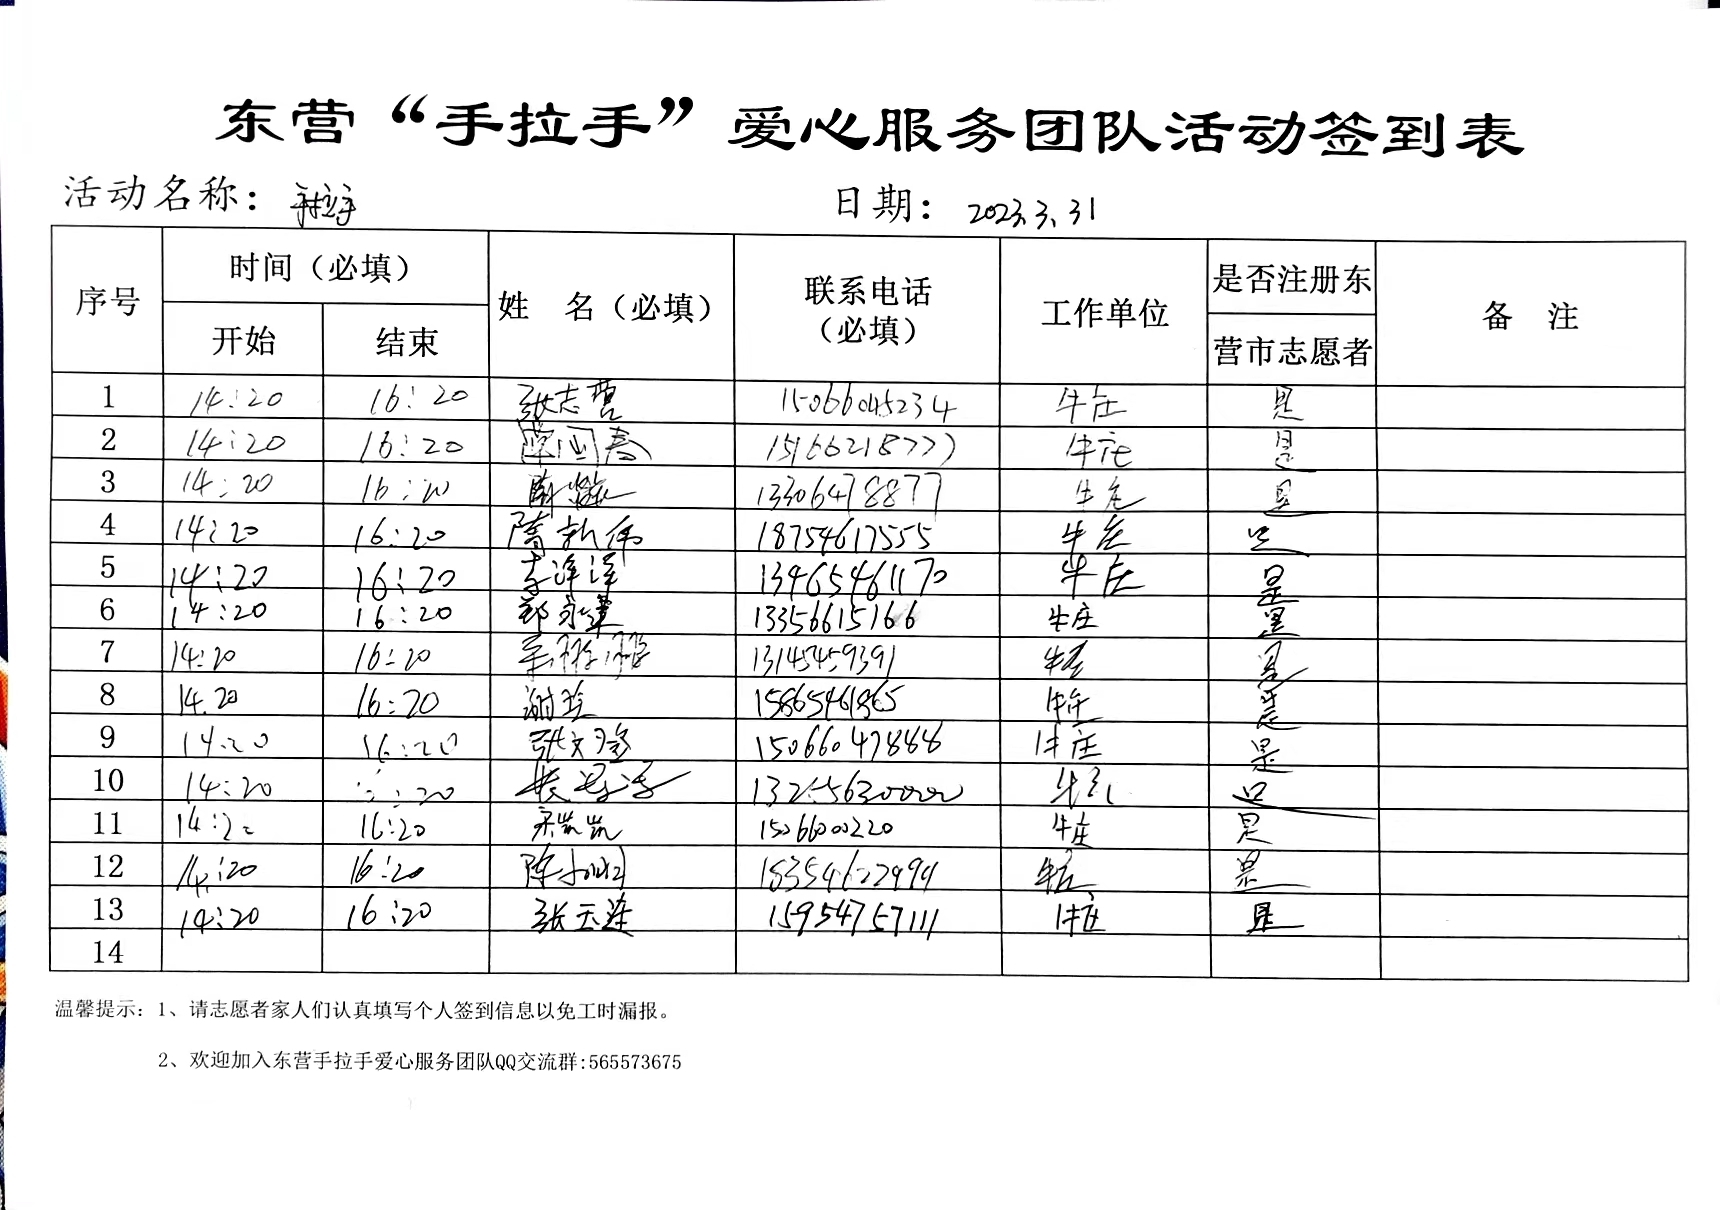 东营“手拉手”爱心服务团队活动签到表
活动名称：手拉手 日期：2023.3.31
序号 时间（必填） 姓 名（必填） 联系电话（必填） 工作单位 是否注册东营市志愿者 备 注
开始 结束
1 14:20 16:20 张志营 15066045234 牛庄 是
2 14:20 16:20 15166218777 牛庄 是
3 14:20 16:20 13306478877 牛庄 是
4 14:20 16:20 隋新伟 18754617555 牛庄 是
5 14:20 16:20 李洋洋 13465461170 牛庄 是
6 14:20 16:20 郑永建 13356615166 牛庄 是
7 14:20 16:20 13145459391 牛庄 是
8 14.20 16:20 谢玲 牛庄 是
9 14:20 16:20 15066047888 牛庄 是
10 14:20 :20 牛庄 是
11 14:20 16:20 宋凯凯 15066000220 牛庄 是
12 14:20 16:20 牛庄 是
13 14:20 16:20 张玉莲 15954757111 牛庄 是
14
温馨提示：1、请志愿者家人们认真填写个人签到信息以免工时漏报。
2、欢迎加入东营手拉手爱心服务团队QQ交流群:565573675